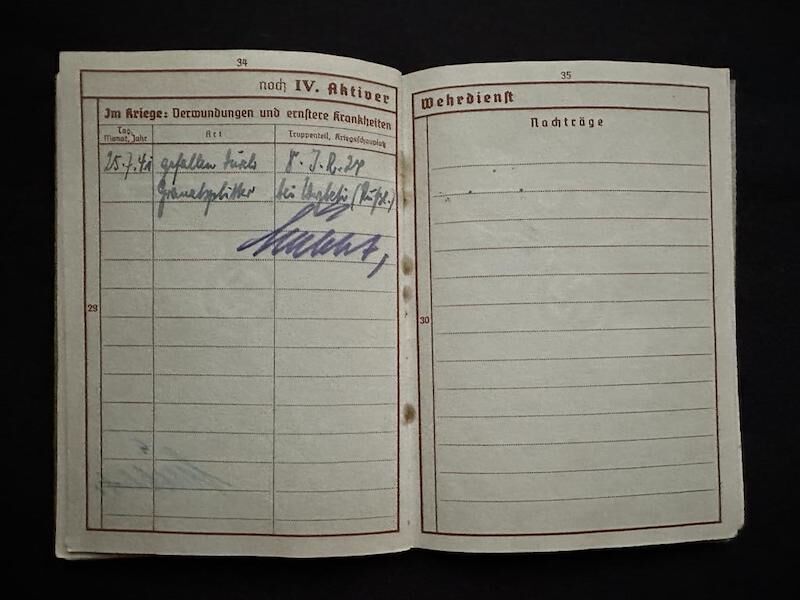 34
noch IV. Aktiver
Im Kriege: Verwundungen und ernstere Krankheiten
Tag, Monat, Jahr
Art
Truppenteil, Kriegsschauplatz
25.7.41 gefallen durch 8. I.R.
Granatsplitter bei (Rußl.)
29
35
Wehrdienst
Nachträge
30